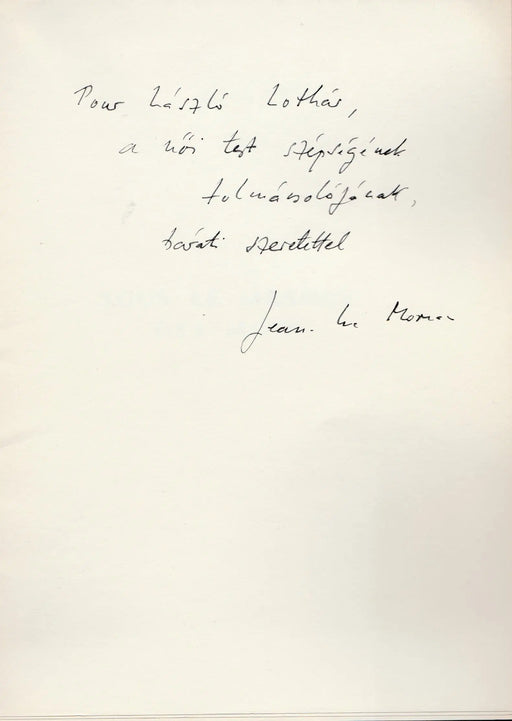 Pour László Lothár,
a női test szépségének
tolmácsolójának,
baráti szeretettel
Jean-